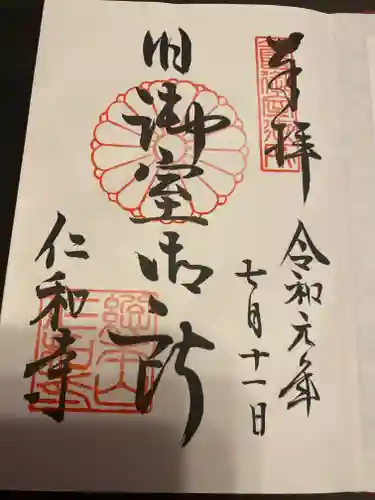 奉拝
令和元年
七月十一日
旧御室御所
仁和寺